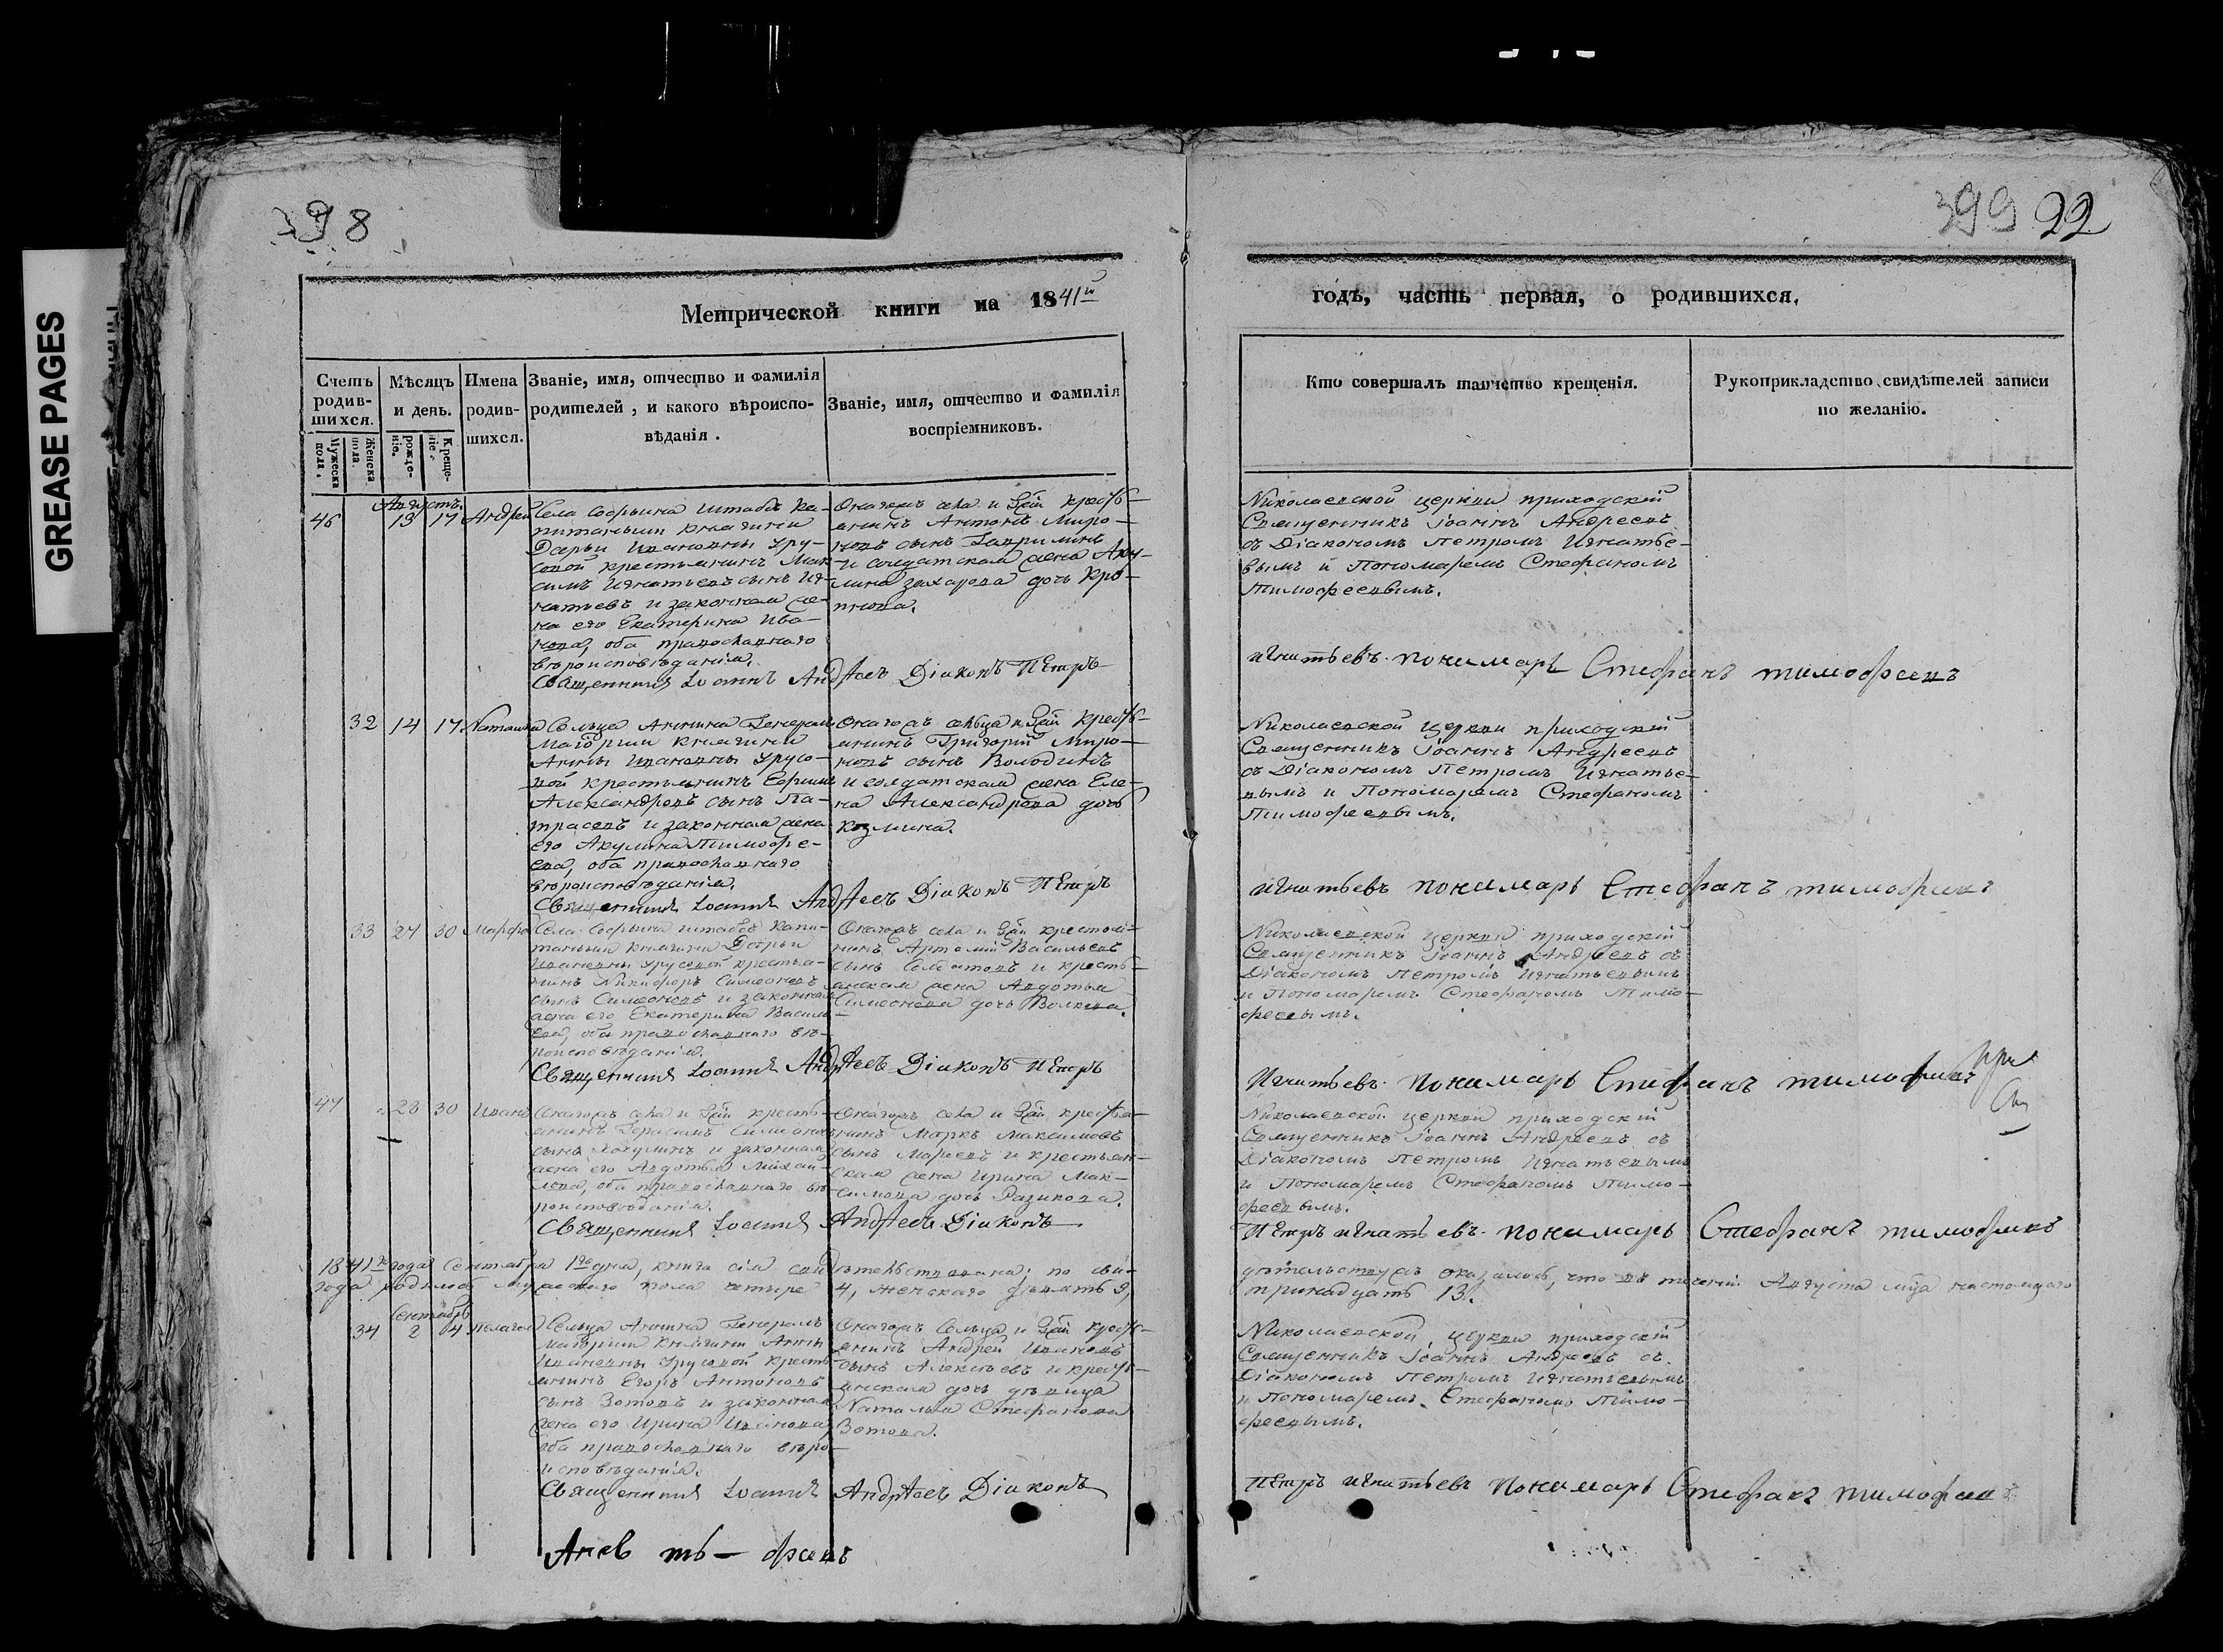 GREASE PAGES
398
399 22
Метрической книги на 1841й
годъ, часть первая, о родившихся.
Счетъ родившихся.
Мужеска пола.
Женска пола.
Мѣсяцъ и день.
рожденіе.
Крещеніе.
Имена родившихся.
Званіе, имя, отчество и фамилія
родителей, и какого вѣроиспо-
вѣданія.
Званіе, имя, отчество и фамилія
воспріемниковъ.
Кто совершалъ таинство крещенія.
Рукоприкладство свидѣтелей записи
по желанію.
Августъ
46 13 17 Андрей
Села Софрына штабсъ ка-
питанши княгини
Дарьи Ивановны Уру-
совой крестьянинъ Мак-
симъ Игнатьевъ сынъ Иг-
натьевъ и законная же-
на его Екатерина Ива-
нова, оба православнаго
вѣроисповѣданія.
Онагожъ села и Гжи кресть-
янинъ Антонъ Миро-
новъ сынъ Гаврилинъ
и солдатская жена Аку-
лина Захарова дочь Кро-
Николаевской церкви приходскій
Священникъ Іоаннъ Андреевъ
съ Діакономъ Петромъ Игнатье-
вымъ и Пономаремъ Стефаномъ
Тимофеевымъ.
Священникъ Іоаннъ Андреевъ Діаконъ Петръ
Игнатьевъ. пономарь Стефанъ тимофеевъ
32 14 17 Наталья
Сельца Аннина Генералъ
Маіорши княгини
Анны Ивановны Урусо-
вой крестьянинъ Ефимъ
Александровъ сынъ Та-
расевъ и законная жена
его Акулина Тимофе-
ева, оба православнаго
вѣроисповѣданія.
Онагожъ сельца и Гжи кресть-
янинъ Григорій Миро-
новъ сынъ Володинъ
и солдатская жена Еле-
на Александрова дочь
Козмина.
Николаевской церкви приходскій
Священникъ Іоаннъ Андреевъ
съ Діакономъ Петромъ Игнатье-
вымъ и Пономаремъ Стефаномъ
Тимофеевымъ.
Священникъ Іоаннъ Андреевъ Діаконъ Петръ
игнатьевъ пономарь Стефанъ тимофеевъ
33 27 30 Марфа
Села Софрына штабсъ капи-
танши княгини Дарьи
Ивановны Урусовой крестья-
нинъ Никифоръ Симеоновъ
сынъ Симеоновъ и законная
жена его Екатерина Василь-
ева, оба православнаго вѣ-
роисповѣданія.
Онагожъ села и Гжи крестья-
нинъ Артемій Васильевъ
сынъ Солдатовъ и кресть-
янская жена Авдотья
Симеонова дочь Волкова.
Николаевской церкви приходскій
Священникъ Іоаннъ Андреевъ съ
Діакономъ Петромъ Игнатьевымъ
и Пономаремъ Стефаномъ Тимо-
феевымъ.
Священникъ Іоаннъ Андреевъ Діаконъ Петръ
Игнатьевъ. пономарь Стефанъ тимофеевъ
47 28 30 Иванъ
Онагожъ села и Гжи кресть-
янинъ Герасимъ Симеоновъ
сынъ и законная
жена его Авдотья Михаи-
лова, оба православнаго вѣ-
роисповѣданія.
Онагожъ села и Гжи крестья-
нинъ Маркъ Максимовъ
сынъ Марковъ и крестьян-
ская жена Ирина Мак-
симова дочь Разикова.
Николаевской церкви приходскій
Священникъ Іоаннъ Андреевъ съ
Діакономъ Петромъ Игнатьевымъ
и Пономаремъ Стефаномъ Тимо-
феевымъ.
Священникъ Іоаннъ Андреевъ Діаконъ
Петръ игнатьевъ. пономарь Стефанъ тимофеевъ
1841го года Сентября 1го дня, книга сія свидѣтельствована; по сви-
дѣтельствужъ оказалось, что въ теченіи Августа мца настоящаго
года родилось мужескаго пола четыре 4, женскаго девять 9,
тринадцать 13.
Сентябрь
34 2 4 Пелагея
Сельца Аннина Генералъ
маіорши княгини Анны
Ивановны Урусовой кресть-
янинъ Егоръ Антоновъ
сынъ Зотовъ и законная
жена его Ирина Иванова,
оба православнаго вѣро-
исповѣданія.
Онагожъ Сельца и Гжи кресть-
янинъ Андрей Ивановъ
сынъ Алексѣевъ и кресть-
янская дочь дѣвица
Наталья Стефанова
Зотова.
Николаевской церкви приходскій
Священникъ Іоаннъ Андреевъ съ
Діакономъ Петромъ Игнатьевымъ
и Пономаремъ Стефаномъ Тимо-
феевымъ.
Священникъ Іоаннъ Андреевъ Діаконъ
Петръ игнатьевъ пономарь Стефанъ тимофеевъ